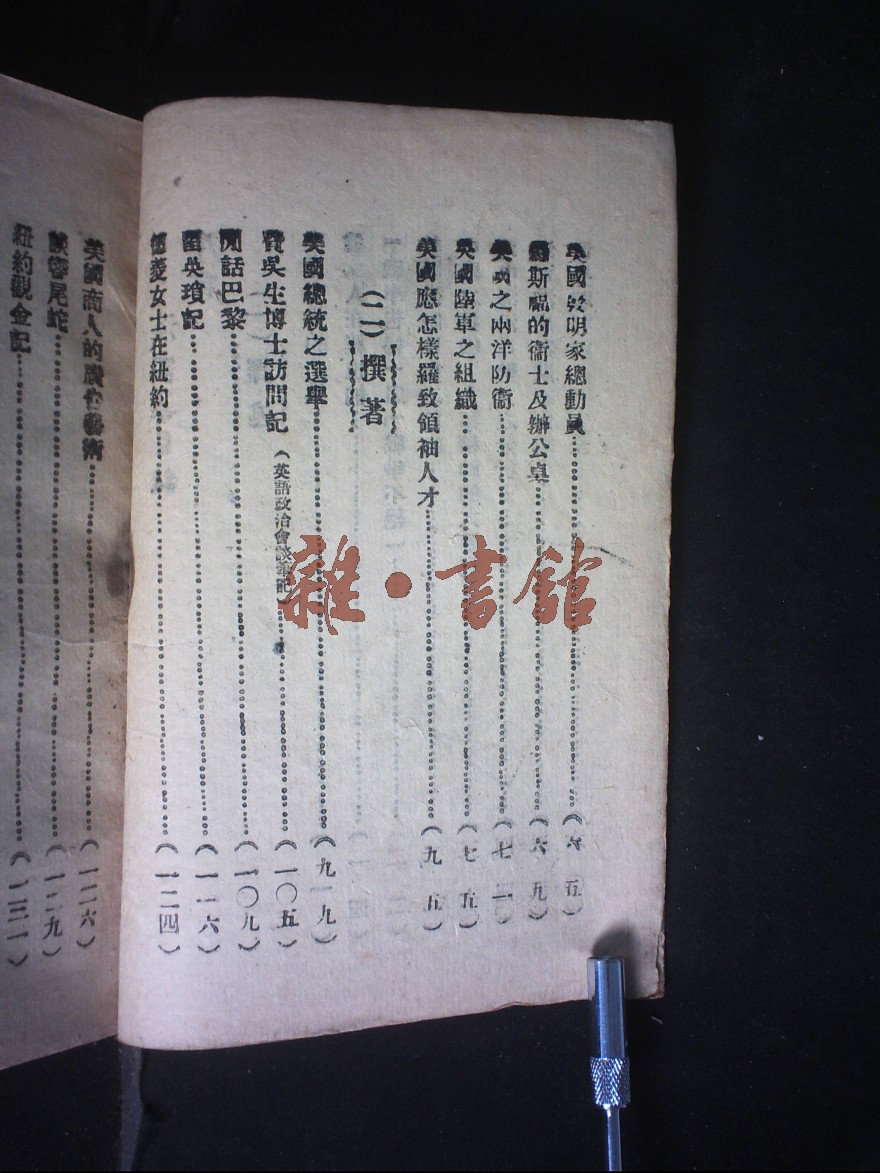 美國發明家總動員……(六五)
羅斯福的衞士及辦公桌……(六九)
美國之兩洋防衞……(七一)
美國陸軍之組織……(七五)
美國應怎樣羅致領袖人才……(九五)
(二)撰著
美國總統之選舉……(九九)
費吳生博士訪問記(英語政治會談筆記)……(一〇五)
閒話巴黎……(一〇九)
留吳瑣記……(一一六)
德菱女士在紐約……(一二四)
美國商人的廣告藝術……(一二六)
談響尾蛇……(一二九)
紐約觀金記……(一三一)
雜·書館